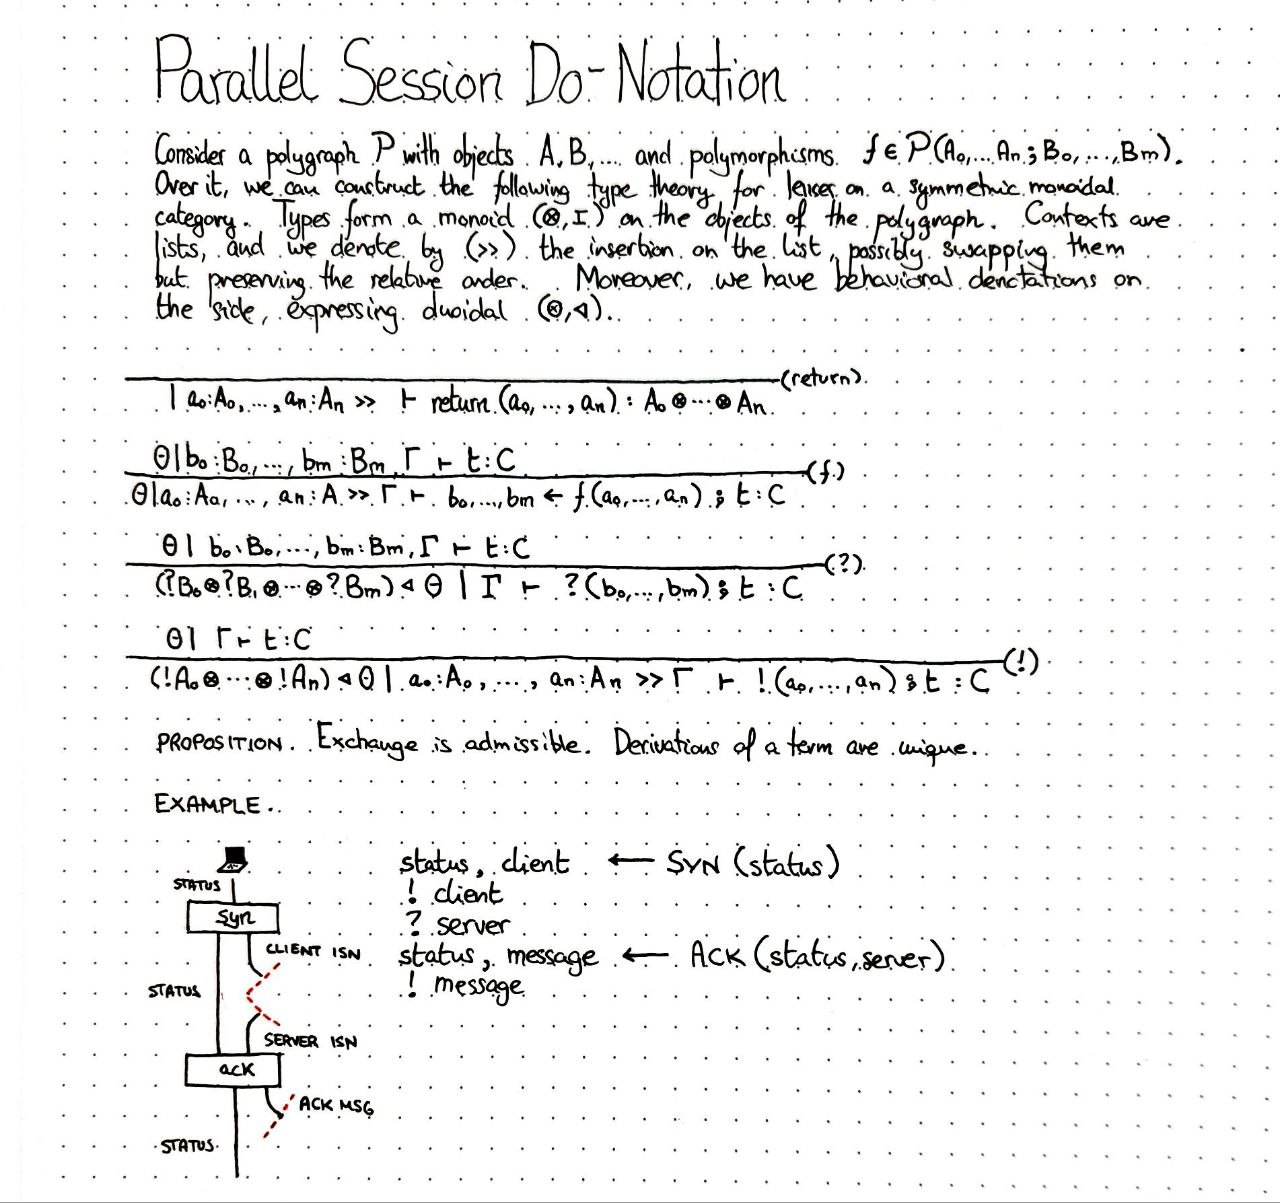 Parallel Session Do-Notation
Consider a polygraph P with objects A, B, ... and polymorphisms f ∈ P(A₀,...,Aₙ; B₀,...,Bₘ).
Over it, we can construct the following type theory for lenses on a symmetric monoidal
category. Types form a monoid (⊗,I) on the objects of the polygraph. Contexts are
lists, and we denote by (>>) the insertion on the list, possibly swapping them
but preserving the relative order. Moreover, we have behavioral denotations on
the side, expressing duoidal (⊗,◁).
(return)
| a₀:A₀,...,aₙ:Aₙ >> ⊢ return (a₀,...,aₙ) : A₀ ⊗ ··· ⊗ Aₙ
Θ | b₀:B₀,..., bₘ:Bₘ, Γ ⊢ t:C
(f)
Θ | a₀:A₀,..., aₙ:A >> Γ ⊢ b₀,...,bₘ ← f(a₀,...,aₙ) ; t:C
Θ | b₀:B₀,..., bₘ:Bₘ, Γ ⊢ t:C
(?)
(?B₀⊗?B₁⊗···⊗?Bₘ) ◁ Θ | Γ ⊢ ?(b₀,...,bₘ) ; t : C
Θ | Γ ⊢ t:C
(!)
(!A₀⊗···⊗!Aₙ) ◁ Θ | a₀:A₀,..., aₙ:Aₙ >> Γ ⊢ !(a₀,...,aₙ) ; t : C
PROPOSITION. Exchange is admissible. Derivations of a term are unique.
EXAMPLE.
status, client ← SYN (status)
STATUS
! client
syn
? server
CLIENT ISN
status, message ← ACK (status, server)
STATUS
! message
SERVER ISN
ack
ACK MSG
STATUS